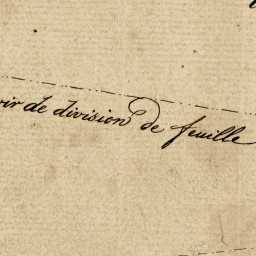 oir de division de feuille